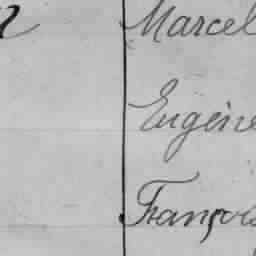 Marcel
Eugène
François